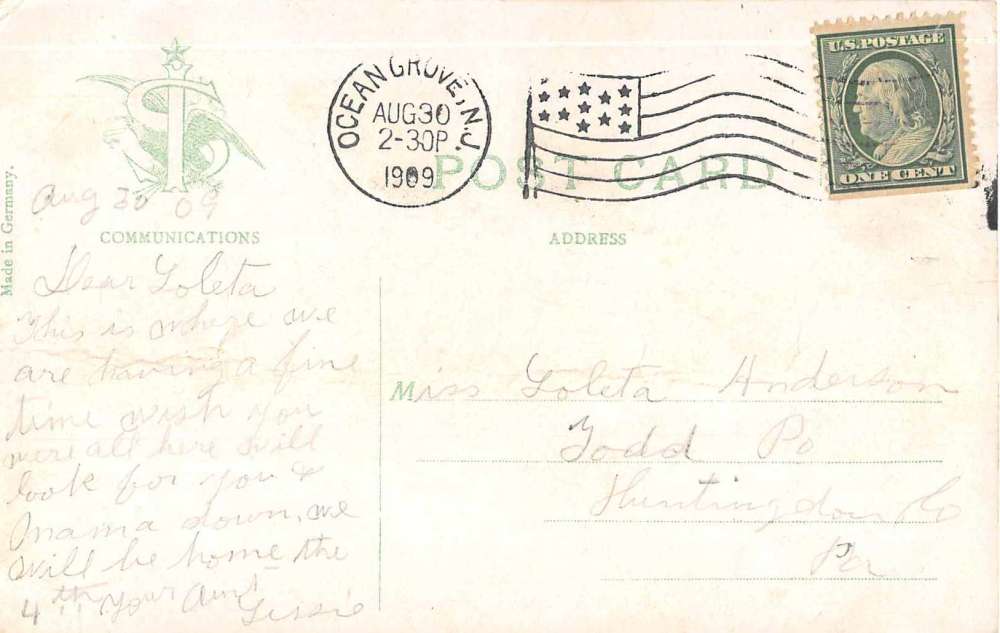 OCEAN GROVE, N.J.
AUG 30
2-30P
1909
U.S. POSTAGE
ONE CENT
POST CARD
Made in Germany.
Aug 30 09
COMMUNICATIONS
ADDRESS
Dear Goleta
This is where we
are having a fine
time wish you
were all here will
look for you &
mama down. we
will be home the
4th your Aunt
Miss Goleta Anderson
Todd Po
Huntingdon Co
Pa